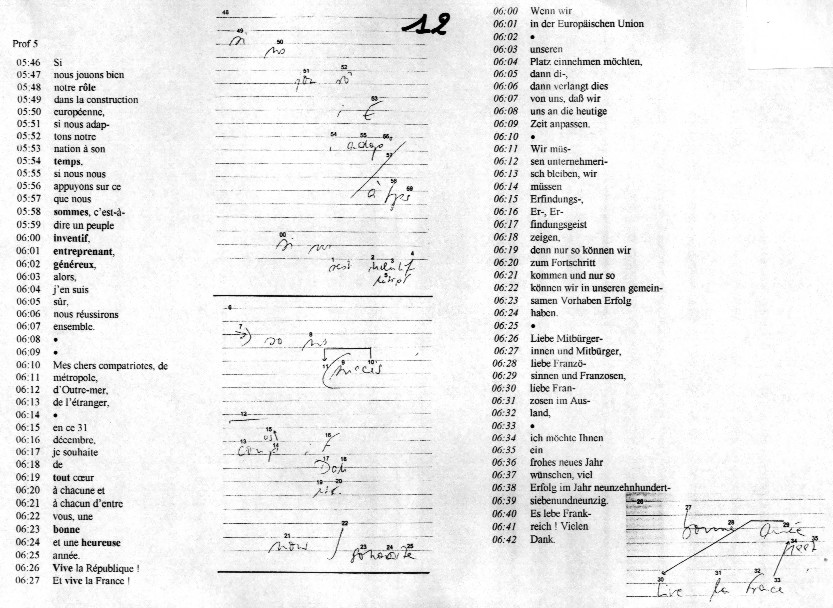 12
Prof 5
05:46 Si
05:47 nous jouons bien
05:48 notre rôle
05:49 dans la construction
05:50 européenne,
05:51 si nous adap-
05:52 tons notre
05:53 nation à son
05:54 temps,
05:55 si nous nous
05:56 appuyons sur ce
05:57 que nous
05:58 sommes, c'est-à-
05:59 dire un peuple
06:00 inventif,
06:01 entreprenant,
06:02 généreux,
06:03 alors,
06:04 j'en suis
06:05 sûr,
06:06 nous réussirons
06:07 ensemble.
06:08 •
06:09 •
06:10 Mes chers compatriotes, de
06:11 métropole,
06:12 d'Outre-mer,
06:13 de l'étranger,
06:14 •
06:15 en ce 31
06:16 décembre,
06:17 je souhaite
06:18 de
06:19 tout cœur
06:20 à chacune et
06:21 à chacun d'entre
06:22 vous, une
06:23 bonne
06:24 et une heureuse
06:25 année.
06:26 Vive la République !
06:27 Et vive la France !
48
49 50
si ns
51 52
53
i €
54 55 56
adap
57
58 59
à tps
00
si ns
1 2 3 4
5
6
7 8
so ns
11 9 10
12
15 16
13 14
comp i f
17 18
Dom
19 20
21 22
nous
23 24 25
souhaite
06:00 Wenn wir
06:01 in der Europäischen Union
06:02 •
06:03 unseren
06:04 Platz einnehmen möchten,
06:05 dann di-,
06:06 dann verlangt dies
06:07 von uns, daß wir
06:08 uns an die heutige
06:09 Zeit anpassen.
06:10 •
06:11 Wir müs-
06:12 sen unternehmeri-
06:13 sch bleiben, wir
06:14 müssen
06:15 Erfindungs-,
06:16 Er-, Er-
06:17 findungsgeist
06:18 zeigen,
06:19 denn nur so können wir
06:20 zum Fortschritt
06:21 kommen und nur so
06:22 können wir in unseren gemein-
06:23 samen Vorhaben Erfolg
06:24 haben.
06:25 •
06:26 Liebe Mitbürger-
06:27 innen und Mitbürger,
06:28 liebe Franzö-
06:29 sinnen und Franzosen,
06:30 liebe Fran-
06:31 zosen im Aus-
06:32 land,
06:33 •
06:34 ich möchte Ihnen
06:35 ein
06:36 frohes neues Jahr
06:37 wünschen, viel
06:38 Erfolg im Jahr neunzehnhundert-
06:39 siebenundneunzig.
06:40 Es lebe Frank-
06:41 reich ! Vielen
06:42 Dank.
26
27 28 29
bonne
34 35
1997
30 31 32 33
la France